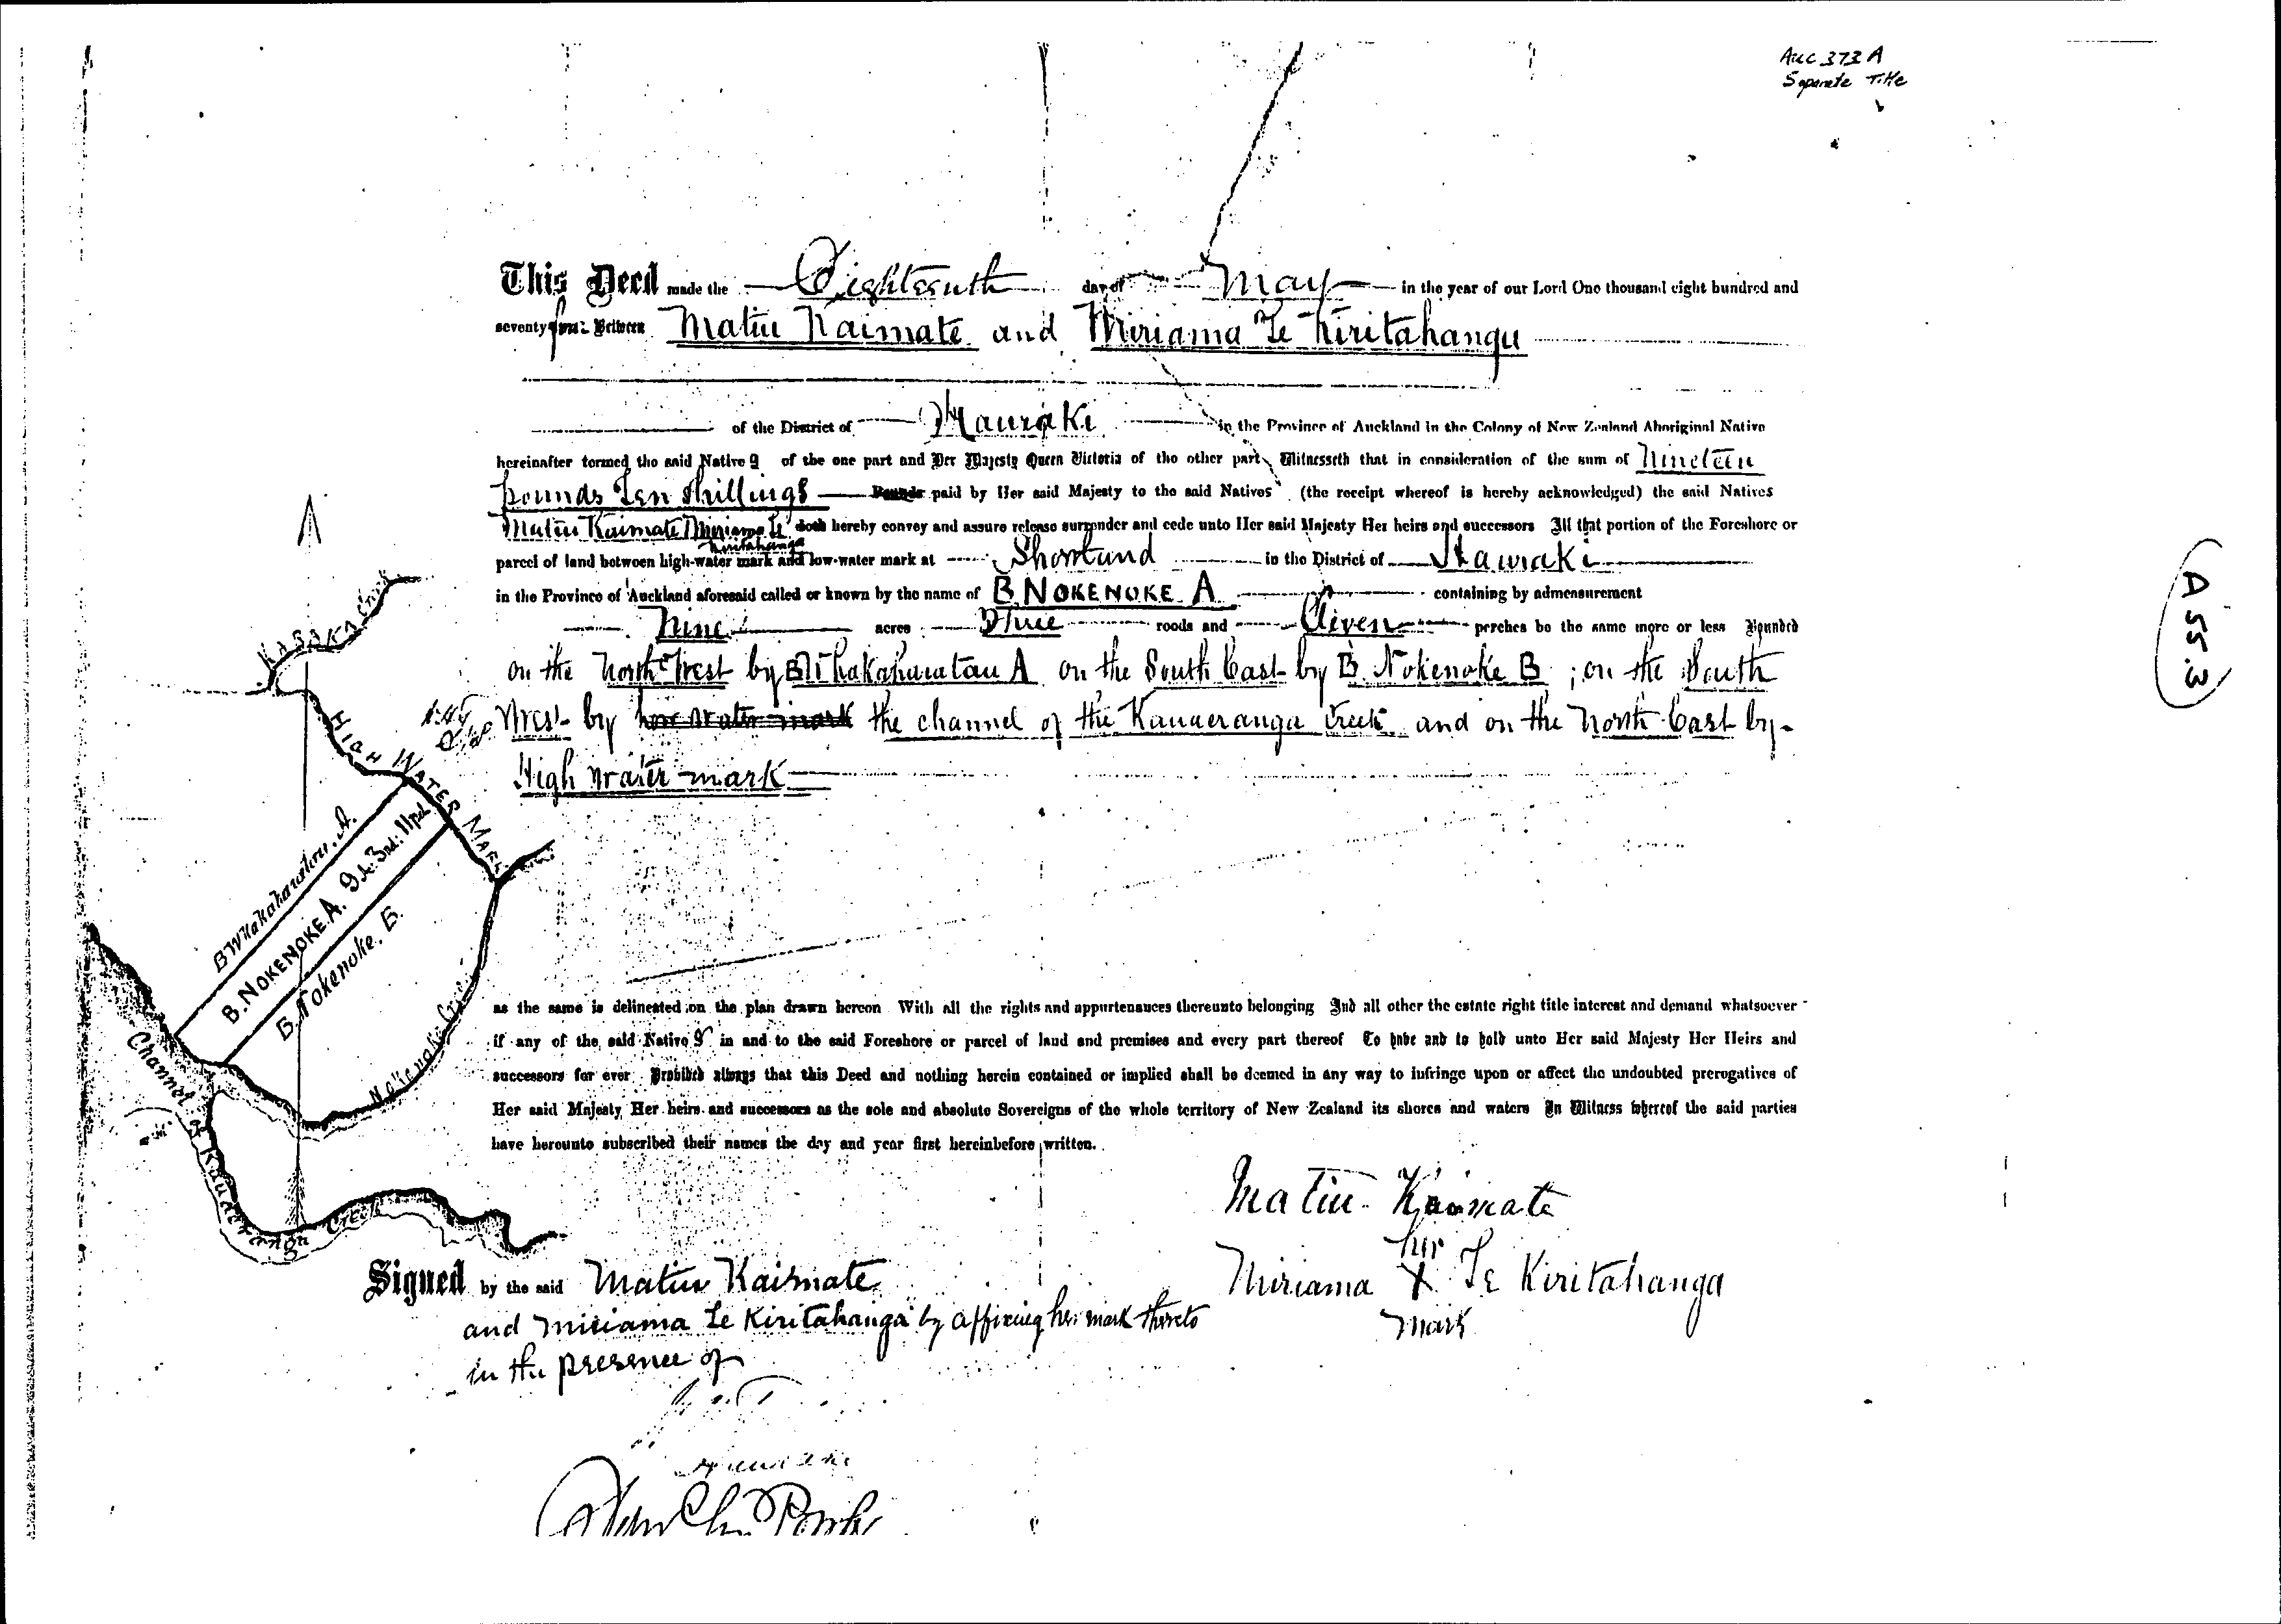 Auc 373 A
Separate Title
This Deed made the Eighteenth day of May in the year of our Lord One thousand eight hundred and
seventy four Between Matiu Kaimate and Miriama Te Kiritahanga
of the District of Hauraki in the Province of Auckland in the Colony of New Zealand Aboriginal Native
hereinafter termed the said Native s of the one part and Her Majesty Queen Victoria of the other part Witnesseth that in consideration of the sum of Nineteen
pounds Ten shillings Pounds paid by Her said Majesty to the said Natives (the receipt whereof is hereby acknowledged) the said Natives
Matiu Kaimate Miriama Te Kiritahanga doth hereby convey and assure release surrender and cede unto Her said Majesty Her heirs and successors All that portion of the Foreshore or
parcel of land between high-water mark and low-water mark at Shortland in the District of Hauraki
in the Province of Auckland aforesaid called or known by the name of B. NOKENOKE A containing by admeasurement
Nine acres Three roods and Eleven perches be the same more or less Bounded
on the North West by B Whakaharatau A on the South East by B. Nokenoke B ; on the South
West by low water mark the channel of the Kauaeranga Creek and on the North East by
High water mark
KARAKA Creek
HIGH WATER MARK
B Whakaharatau. A.
B. NOKENOKE. A. 9a. 3rds. 11pds
B. Nokenoke. B.
Nokenoke Creek
Channel of Kauaeranga Creek
as the same is delineated on the plan drawn hereon With all the rights and appurtenances thereunto belonging And all other the estate right title interest and demand whatsoever
if any of the said Native s in and to the said Foreshore or parcel of land and premises and every part thereof To have and to hold unto Her said Majesty Her Heirs and
successors for ever Provided always that this Deed and nothing herein contained or implied shall be deemed in any way to infringe upon or affect the undoubted prerogatives of
Her said Majesty Her heirs and successors as the sole and absolute Sovereigns of the whole territory of New Zealand its shores and waters In Witness whereof the said parties
have hereunto subscribed their names the day and year first hereinbefore written.
Matiu Kaimate
her
Miriama X Te Kiritahanga
mark
Signed by the said Matiu Kaimate
and Miriama Te Kiritahanga by affixing her mark thereto
in the presence of
A 553